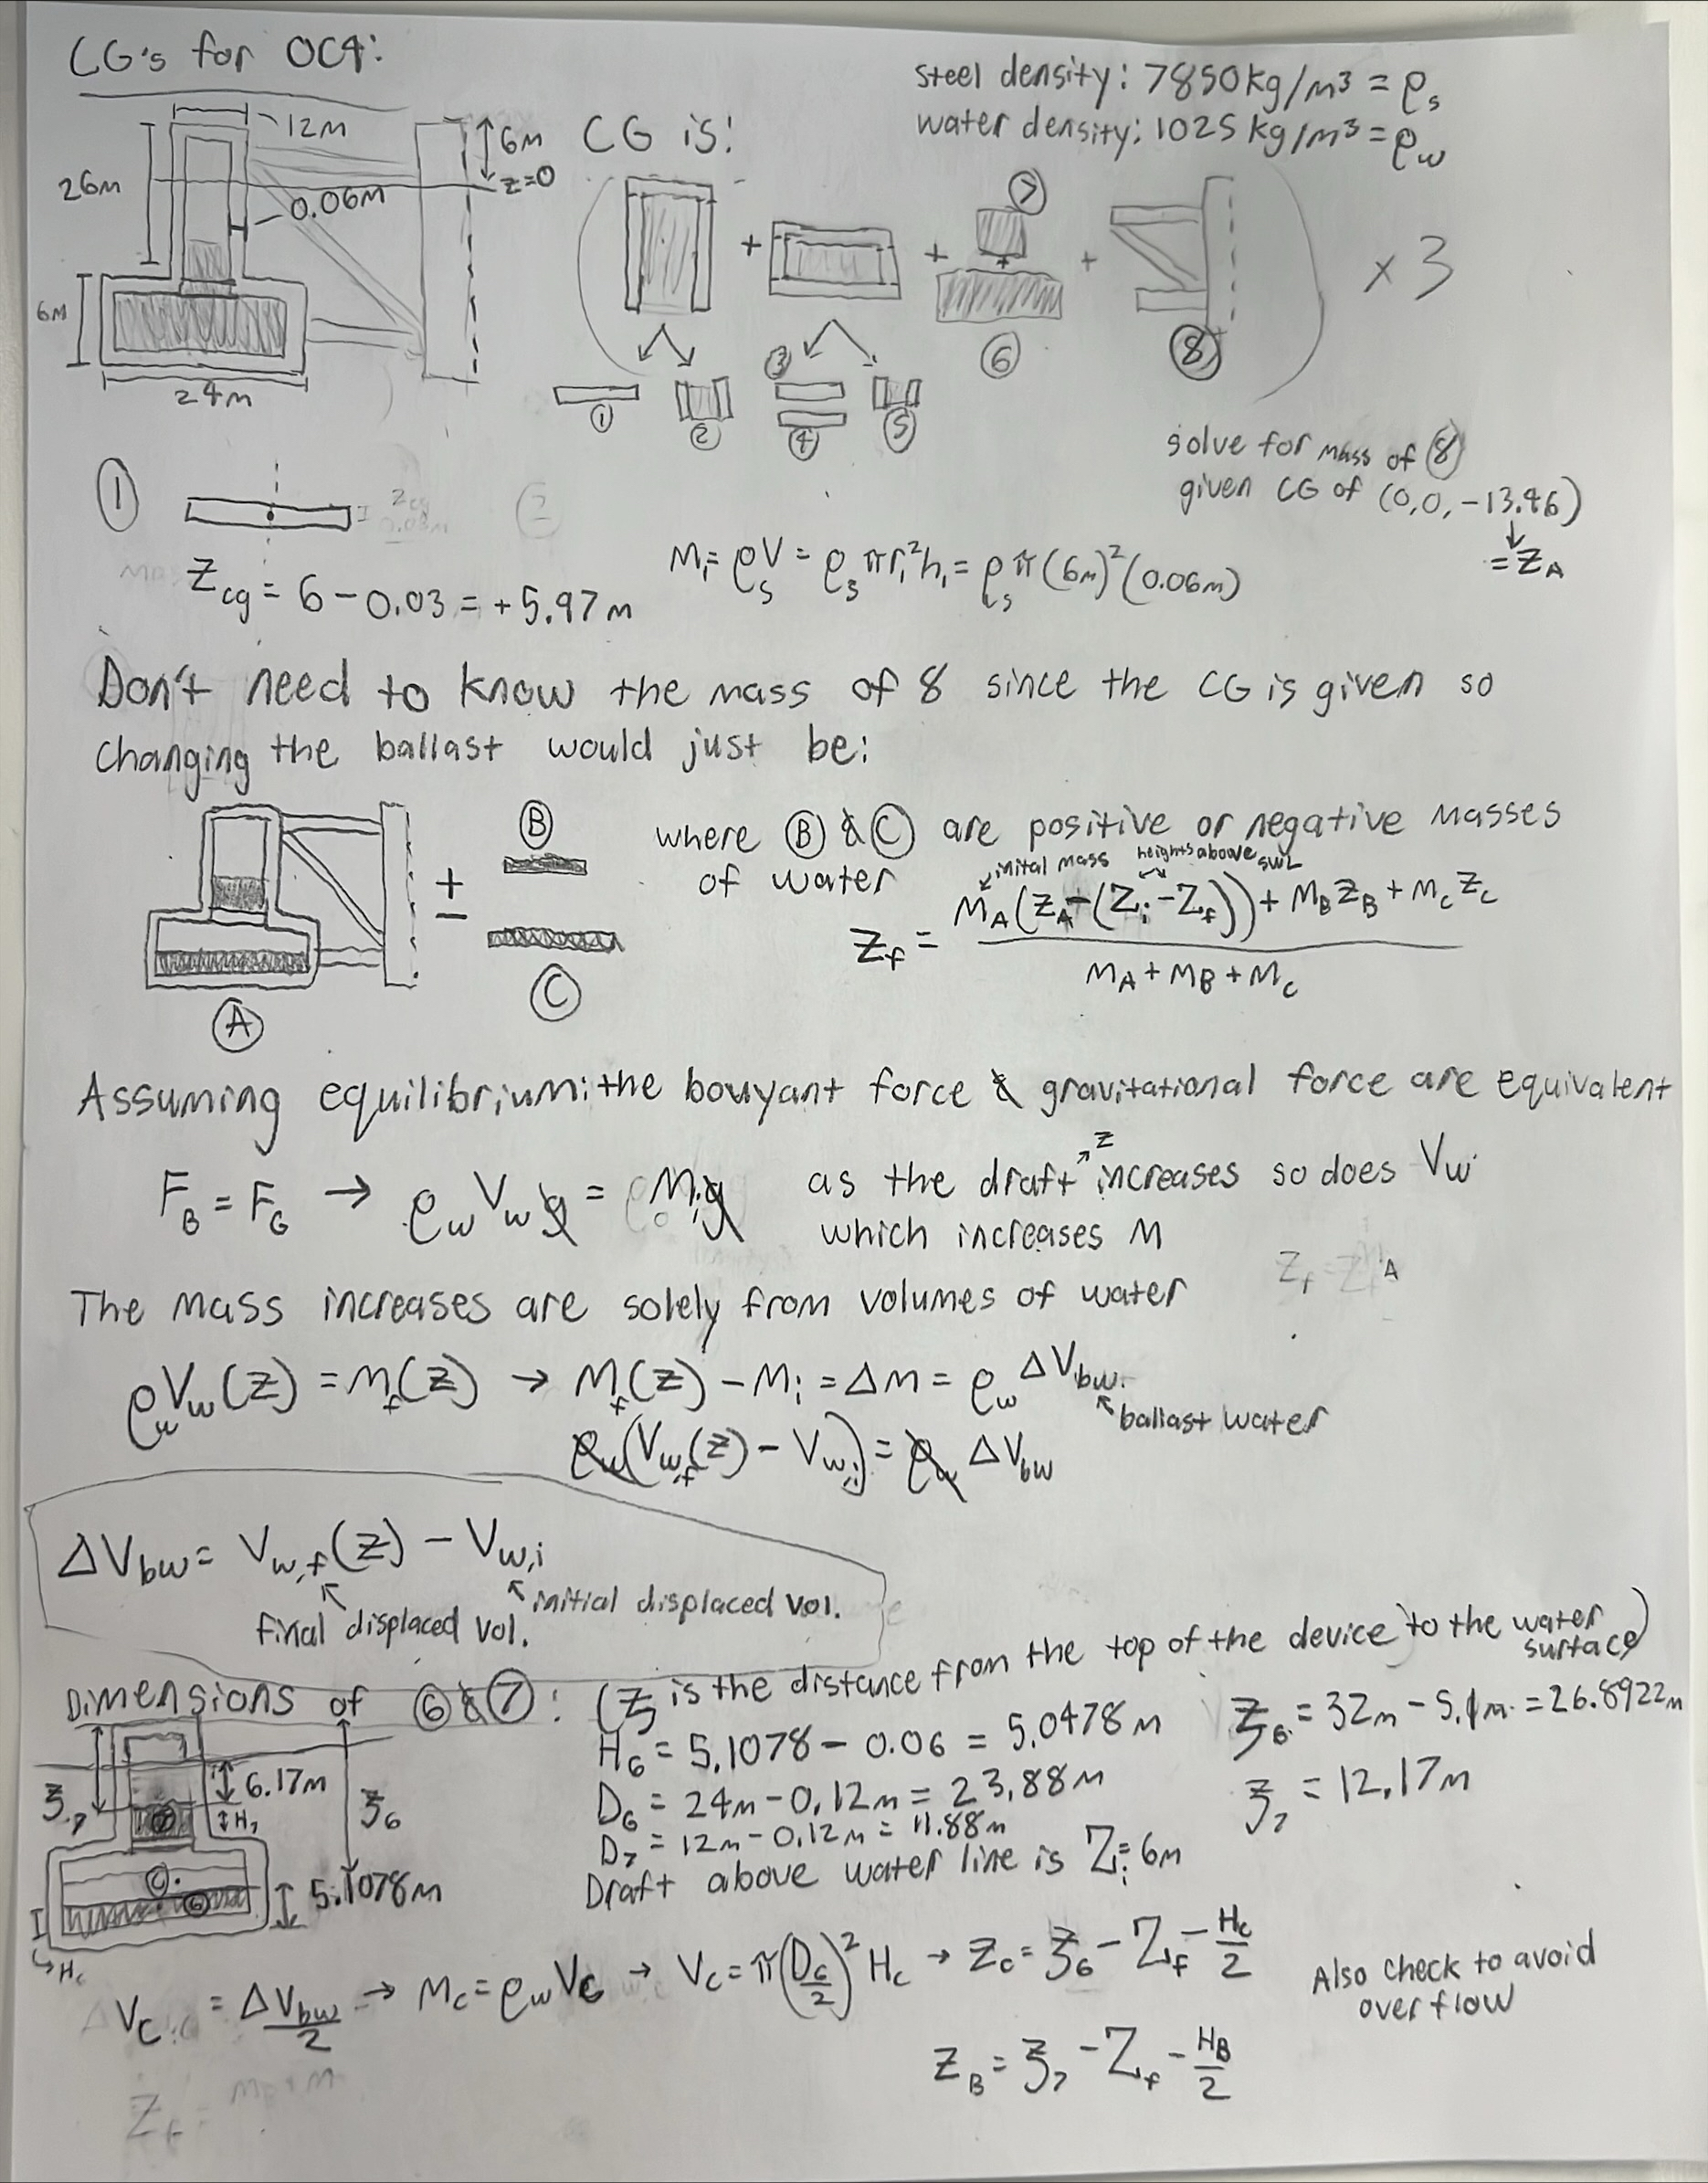 CG's for OC4:
steel density: 7850kg/m³ = ρs
water density: 1025 kg/m³ = ρw
12m
6m
CG is:
z=0
26m
0.06m
+
+
⑦
+
+
× 3
6m
24m
⑥
⑧
①
②
③
④
⑤
solve for mass of ⑧
given CG of (0,0,-13.46)
↓
= ZA
①
Zcg = 6 - 0.03 = +5.97m
M₁ = ρsV = ρsπr₁²h₁ = ρsπ(6m)²(0.06m)
Don't need to know the mass of 8 since the CG is given so
changing the ballast would just be:
Ⓐ
±
Ⓑ
Ⓒ
where Ⓑ & Ⓒ are positive or negative masses
of water
inital mass
heights above SWL
Zf = MA(ZA+(Zi-Zf))+MBZB+McZc / MA+MB+Mc
Assuming equilibrium: the bouyant force & gravitational force are equivalent
FB = FG → ρwVwg = Mig
as the draft increases so does Vw
z
which increases M
The mass increases are solely from volumes of water
ρwVw(z) = Mf(z) → Mf(z) - Mi = Δm = ρwΔVbw
ballast water
ρw(Vw,f(z) - Vw,i) = ρwΔVbw
ΔVbw = Vw,f(z) - Vw,i
final displaced vol.
initial displaced vol.
Dimensions of ⑥ & ⑦: (ʒ is the distance from the top of the device to the water surface)
H6 = 5.1078 - 0.06 = 5.0478m
ʒ6 = 32m - 5.1m = 26.8922m
D6 = 24m - 0.12m = 23.88m
ʒ7 = 12.17m
D7 = 12m - 0.12m = 11.88m
Draft above water line is Zi = 6m
ʒ7
6.17m
H7
ʒ6
⑦
Ⓒ
⑥
5.1078m
Hc
Vc = ΔVbw/2 → Mc = ρwVc → Vc = π(D6/2)²Hc → Zc = ʒ6 - Zf - Hc/2
ZB = ʒ7 - Zf - HB/2
Also check to avoid
overflow